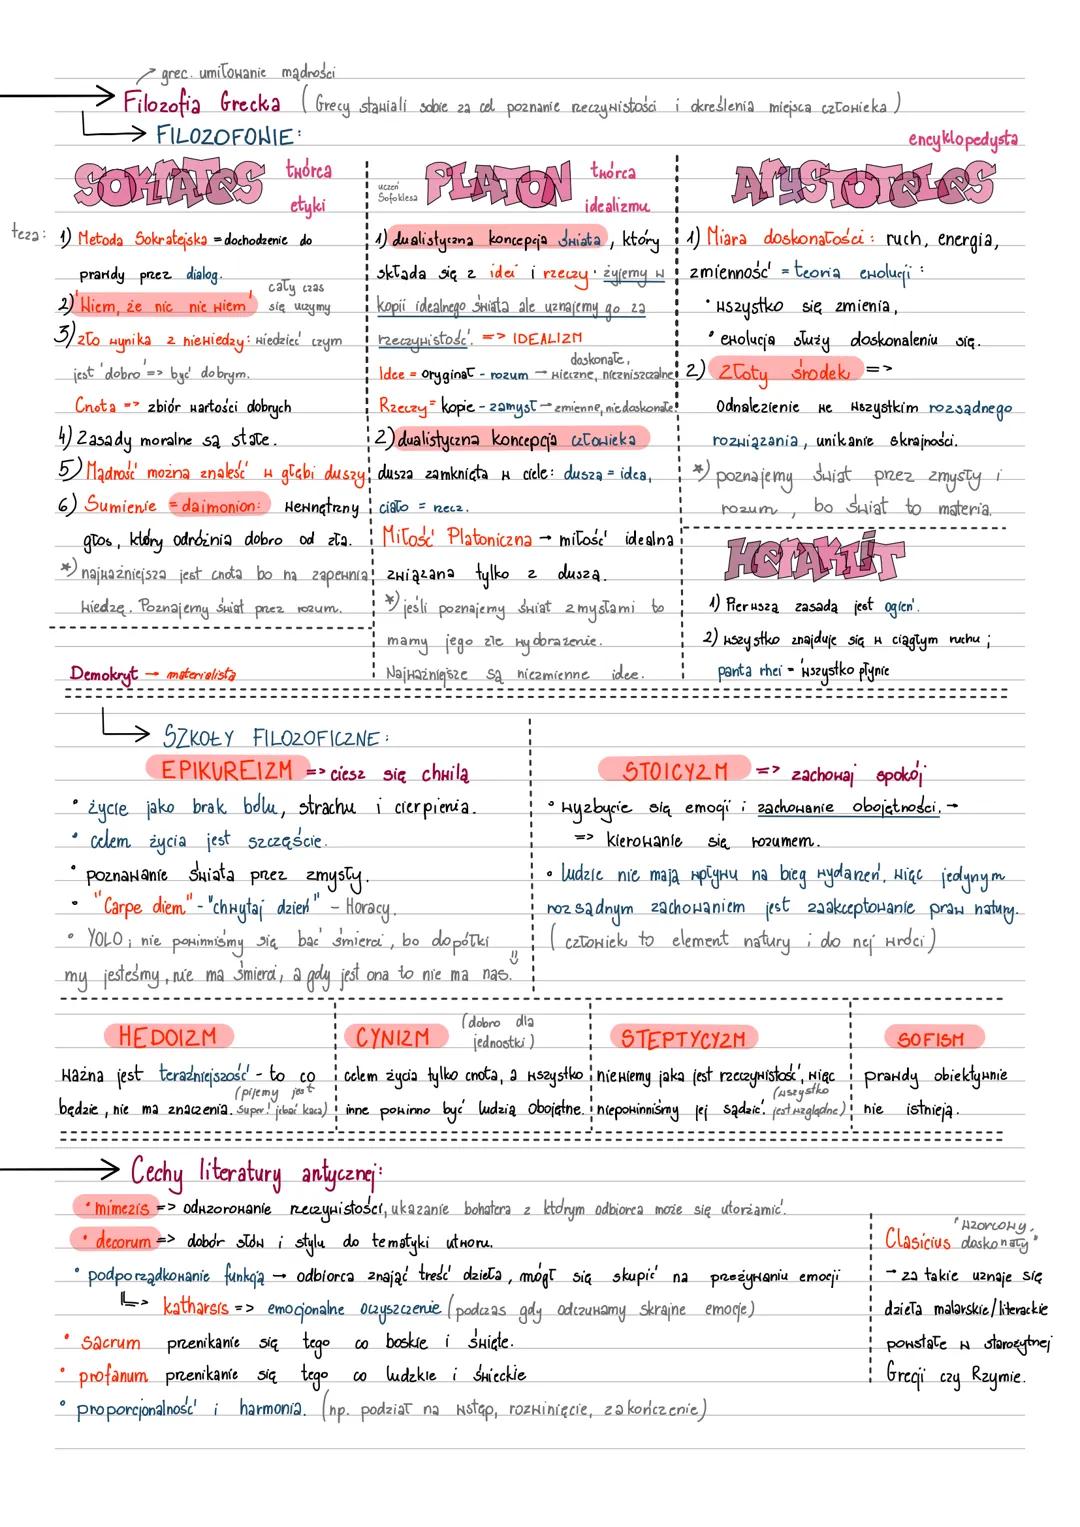 grec. umiłowanie mądrości
Filozofia Grecka (Grecy stawiali sobie za cel poznanie rzeczywistości i określenia miejsca człowieka)
FILOZOFOWIE:
SOKRATES
twórca
etyki
teza: 1) Metoda Sokratejska = dochodzenie do
prawdy przez dialog.
2) "Wiem, że nic nie wiem" cały czas się uczymy
3) zło wynika z niewiedzy: wiedzieć czym
jest 'dobro' => być dobrym.
Cnota => zbiór wartości dobrych
4) Zasady moralne są stałe.
5) Mądrość można znaleść w głębi duszy
6) Sumienie = daimonion: wewnętrzny
głos, który odróżnia dobro od zła.
*) najważniejsza jest cnota bo na zapewnia
wiedzę. Poznajemy świat przez rozum.
Demokryt → materialista
uczeń
Sofoklesa
PLATON
twórca
idealizmu
1) dualistyczna koncepcja świata, który
składa się z idei i rzeczy. żyjemy w
kopii idealnego świata ale uznajemy go za
rzeczywistość. => IDEALIZM
Idee = oryginał - rozum → doskonałe, wieczne, niezniszczalne
Rzeczy = kopie - zamysł → zmienne, niedoskonałe
2) dualistyczna koncepcja człowieka
dusza zamknięta w ciele: dusza = idea,
ciało = rzecz.
Miłość Platoniczna → miłość idealna
związana tylko z duszą.
*) jeśli poznajemy świat zmysłami to
mamy jego złe wyobrażenie.
Najważniejsze są niezmienne idee.
encyklopedysta
ARYSTOTELES
1) Miara doskonałości: ruch, energia,
zmienność = teoria ewolucji:
• wszystko się zmienia,
• ewolucja służy doskonaleniu się.
2) Złoty środek =>
Odnalezienie we wszystkim rozsądnego
rozwiązania, unikanie skrajności.
*) poznajemy świat przez zmysły i
rozum, bo świat to materia.
HERAKLIT
1) Pierwszą zasadą jest ogień.
2) wszystko znajduje się w ciągłym ruchu;
panta rhei - wszystko płynie
SZKOŁY FILOZOFICZNE:
EPIKUREIZM => ciesz się chwilą
• życie jako brak bólu, strachu i cierpienia.
• celem życia jest szczęście.
• poznawanie świata przez zmysły.
• "Carpe diem" - "chwytaj dzień" - Horacy.
• YOLO; nie powinniśmy się bać śmierci, bo dopółki
my jesteśmy, nie ma śmierci, a gdy jest ona to nie ma nas. ü
STOICYZM => zachowaj spokój
• wyzbycie się emocji i zachowanie obojętności. →
=> kierowanie się rozumem.
• ludzie nie mają wpływu na bieg wydarzeń, więc jedynym
rozsądnym zachowaniem jest zaakceptowanie praw natury.
(człowiek to element natury i do niej wróci)
HEDOIZM
ważna jest teraźniejszość - to co
będzie, nie ma znaczenia. (pijemy jest super! jebać kaca)
CYNIZM (dobro dla jednostki)
celem życia tylko cnota, a wszystko
inne powinno być ludzią obojętne.
STEPTYCYZM
niewiemy jaka jest rzeczywistość, więc
niepowinniśmy jej sądzić. (wszystko jest względne)
SOFISM
prawdy obiektywnie
nie istnieją.
Cechy literatury antycznej:
• mimezis => odwzorowanie rzeczywistości, ukazanie bohatera z którym odbiorca może się utożsamić.
• decorum => dobór słów i stylu do tematyki utworu.
• podporządkowanie funkcja → odbiorca znając treść dzieła, mógł się skupić na przeżywaniu emocji
=> katharsis => emocjonalne oczyszczenie (podczas gdy odczuwamy skrajne emocje)
• sacrum przenikanie się tego co boskie i święte.
• profanum przenikanie się tego co ludzkie i świeckie
• proporcjonalność i harmonia. (np. podział na wstęp, rozwinięcie, zakończenie)
Clasicius "wzorcowy, doskonały"
→ za takie uznaje się
dzieła malarskie/literackie
powstałe w starożytnej
Grecji czy Rzymie.